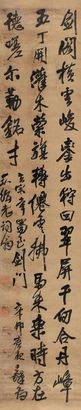 劍閣橫雲峻鑾輿出狩回翠屏千仞合丹嶂
五丁開灌木縈旗轉僊雲拂馬來乘時方在
德嗟爾勒銘才
辛卯